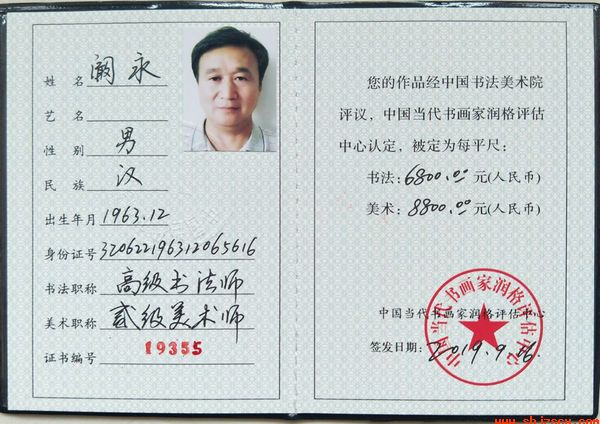 姓 名 阚永
艺 名
性 别 男
民 族 汉
出生年月 1963.12
身份证号 320622196312065616
书法职称 高级书法师
美术职称 贰级美术师
证书编号 19355
您的作品经中国书法美术院
评议,中国当代书画家润格评估
中心认定,被定为每平尺:
书法:6800.00元(人民币)
美术:8800.00元(人民币)
中国当代书画家润格评估中心
签发日期:2019.9.26
中国当代书画家润格评估中心